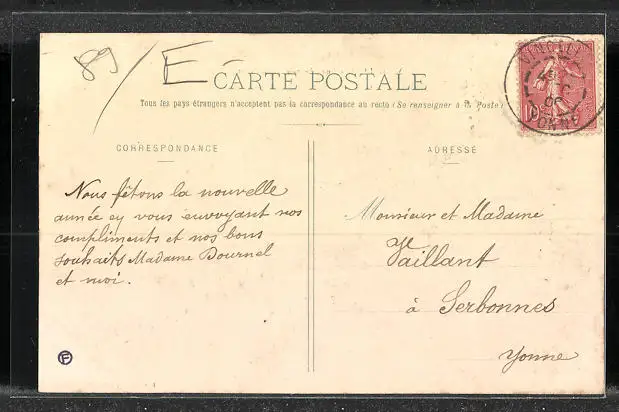 89/E
CARTE POSTALE
Tous les pays étrangers n'acceptent pas la correspondance au recto (Se renseigner à la Poste)
CORRESPONDANCE
Nous fêtons la nouvelle
année en vous envoyant nos
compliments et nos bons
souhaits Madame Dournel
et moi.
F
ADRESSE
Monsieur et Madame
Vaillant
à Serbonnes
Yonne
10
YONNE